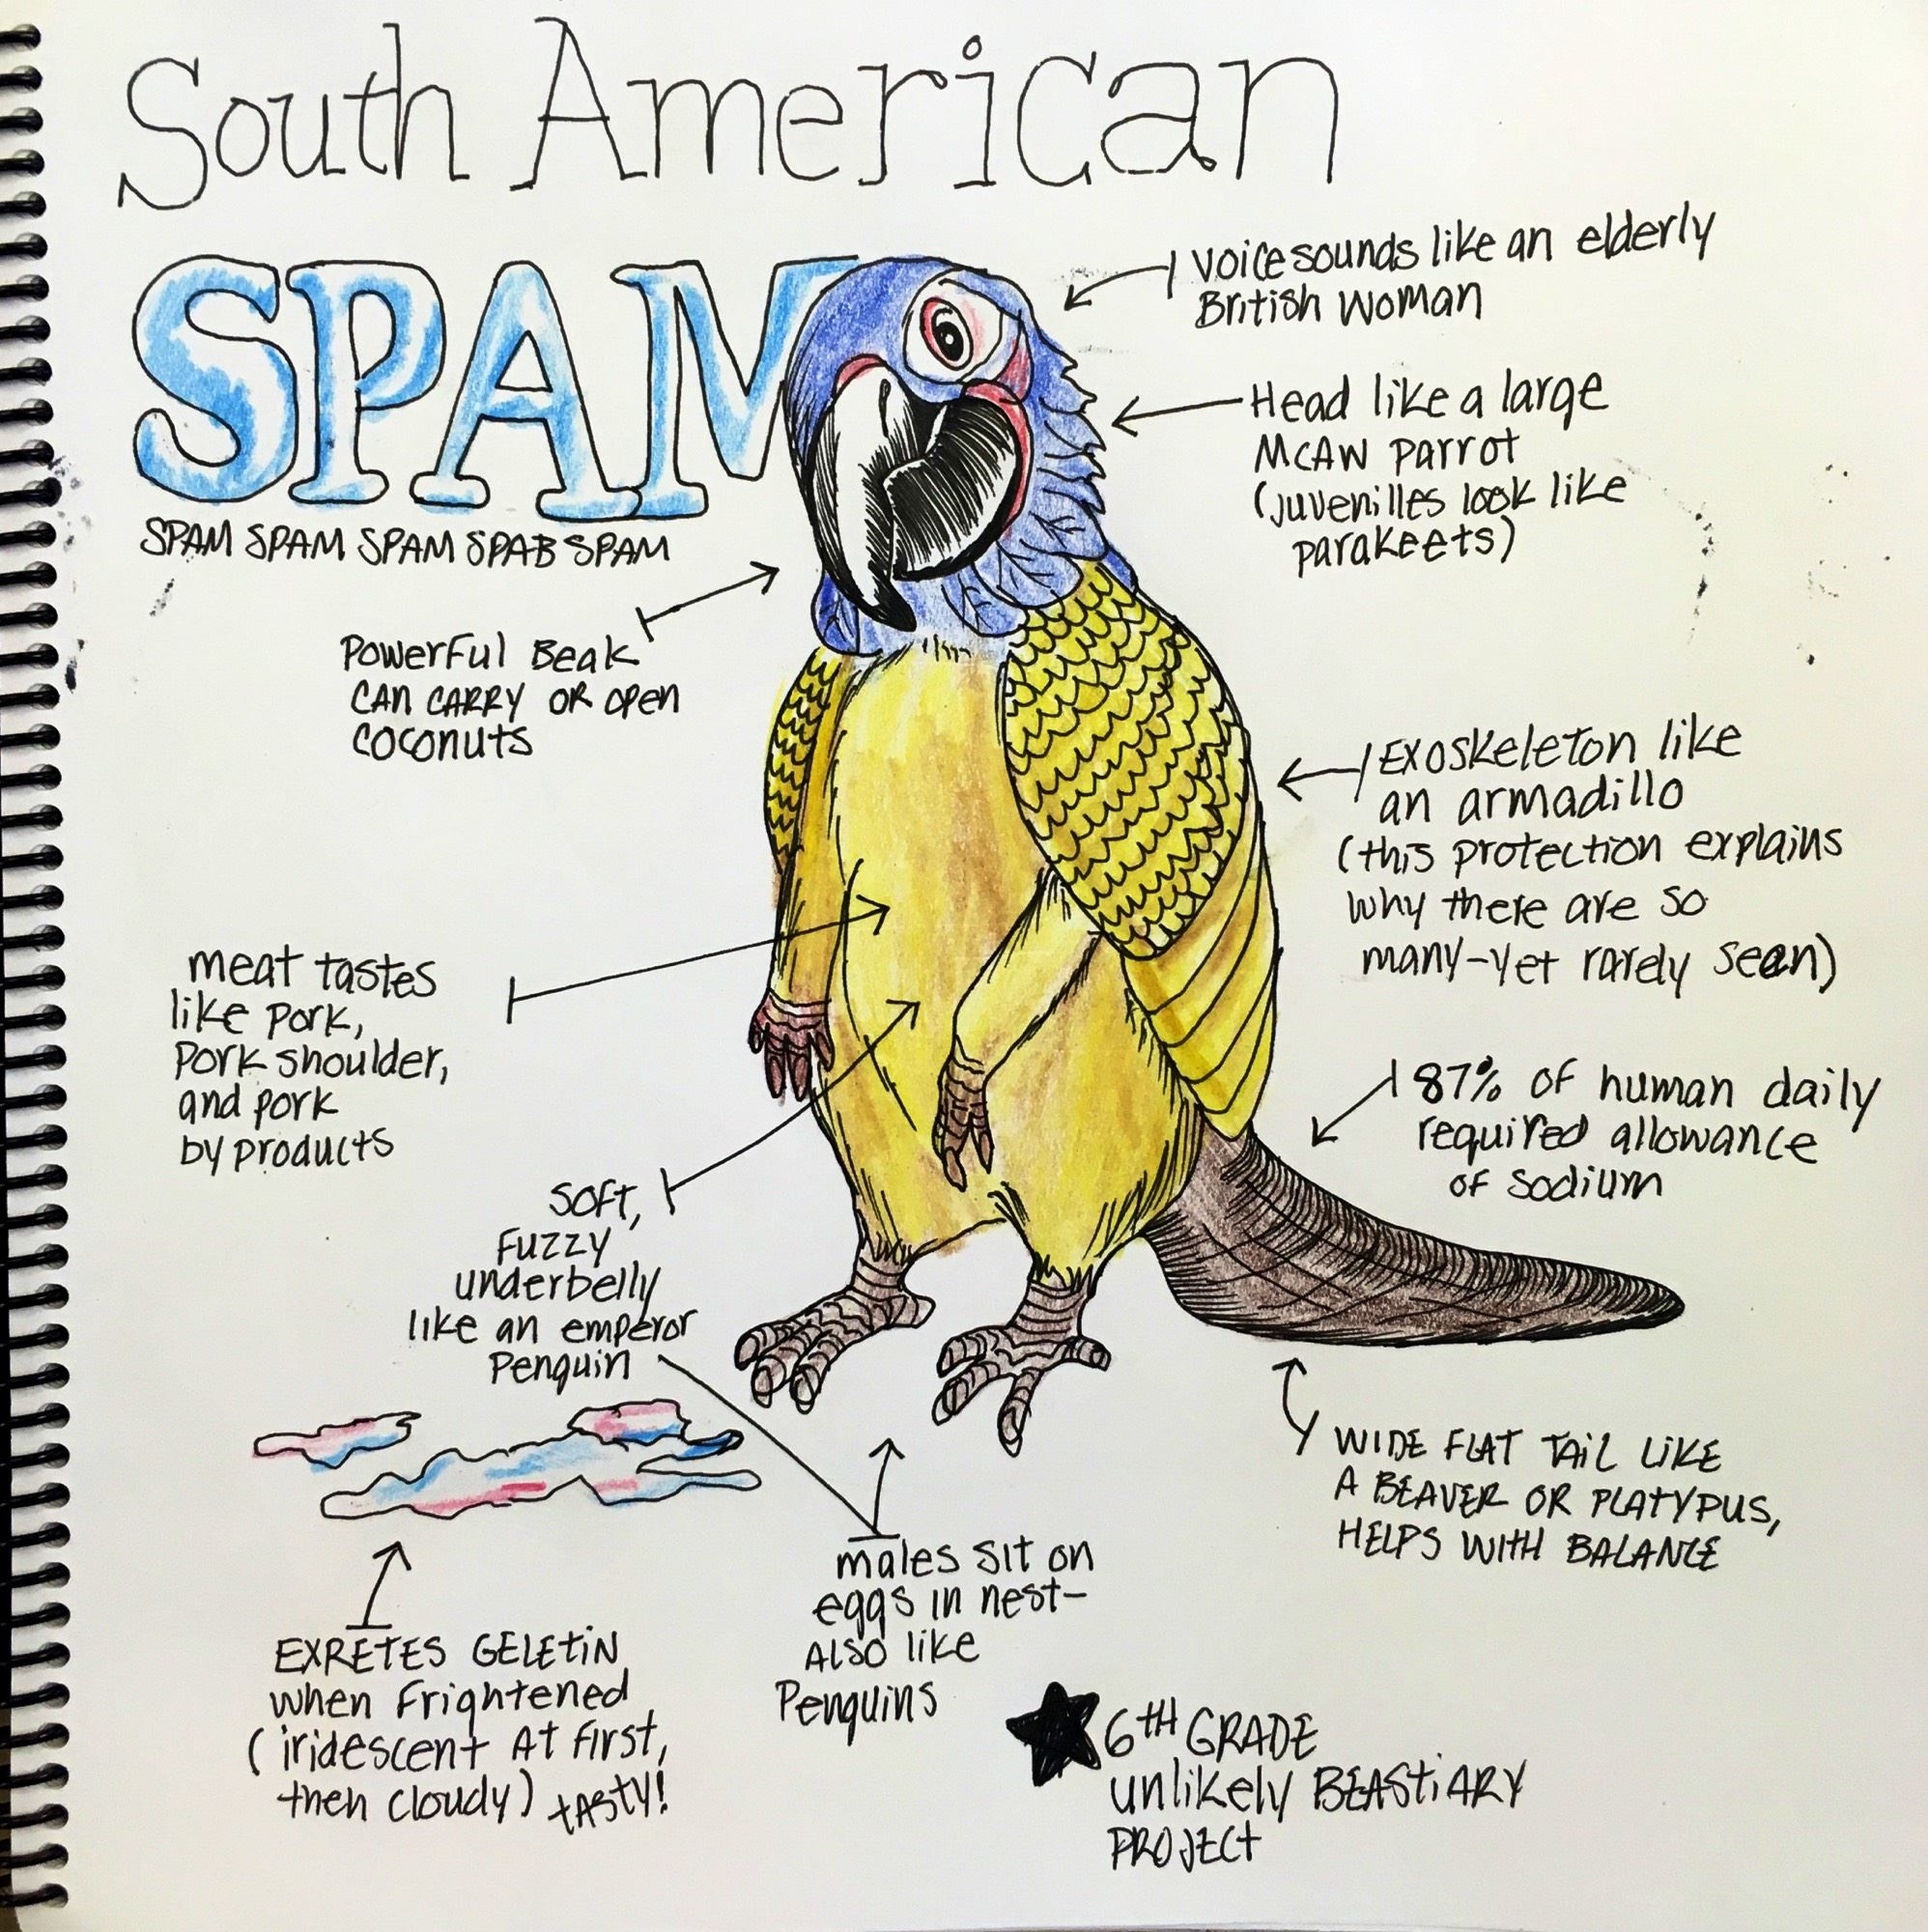 South American
SPAM
SPAM SPAM SPAM SPAB SPAM
voice sounds like an elderly
British woman
Head like a large
McAW parrot
(juvenilles look like
parakeets)
Powerful Beak
CAN CARRY OR open
coconuts
Exoskeleton like
an armadillo
(this protection explains
why there are so
many-yet rarely seen)
meat tastes
like pork,
pork shoulder,
and pork
by products
87% of human daily
required allowance
of sodium
soft,
fuzzy
underbelly
like an emperor
Penguin
WIDE FLAT TAIL LIKE
A BEAVER OR PLATYPUS,
HELPS WITH BALANCE
males sit on
eggs in nest-
Also like
Penguins
EXRETES GELETIN
when frightened
(iridescent At first,
then cloudy) tASTY!
6TH GRADE
unlikely BEASTIARY
PROJECT